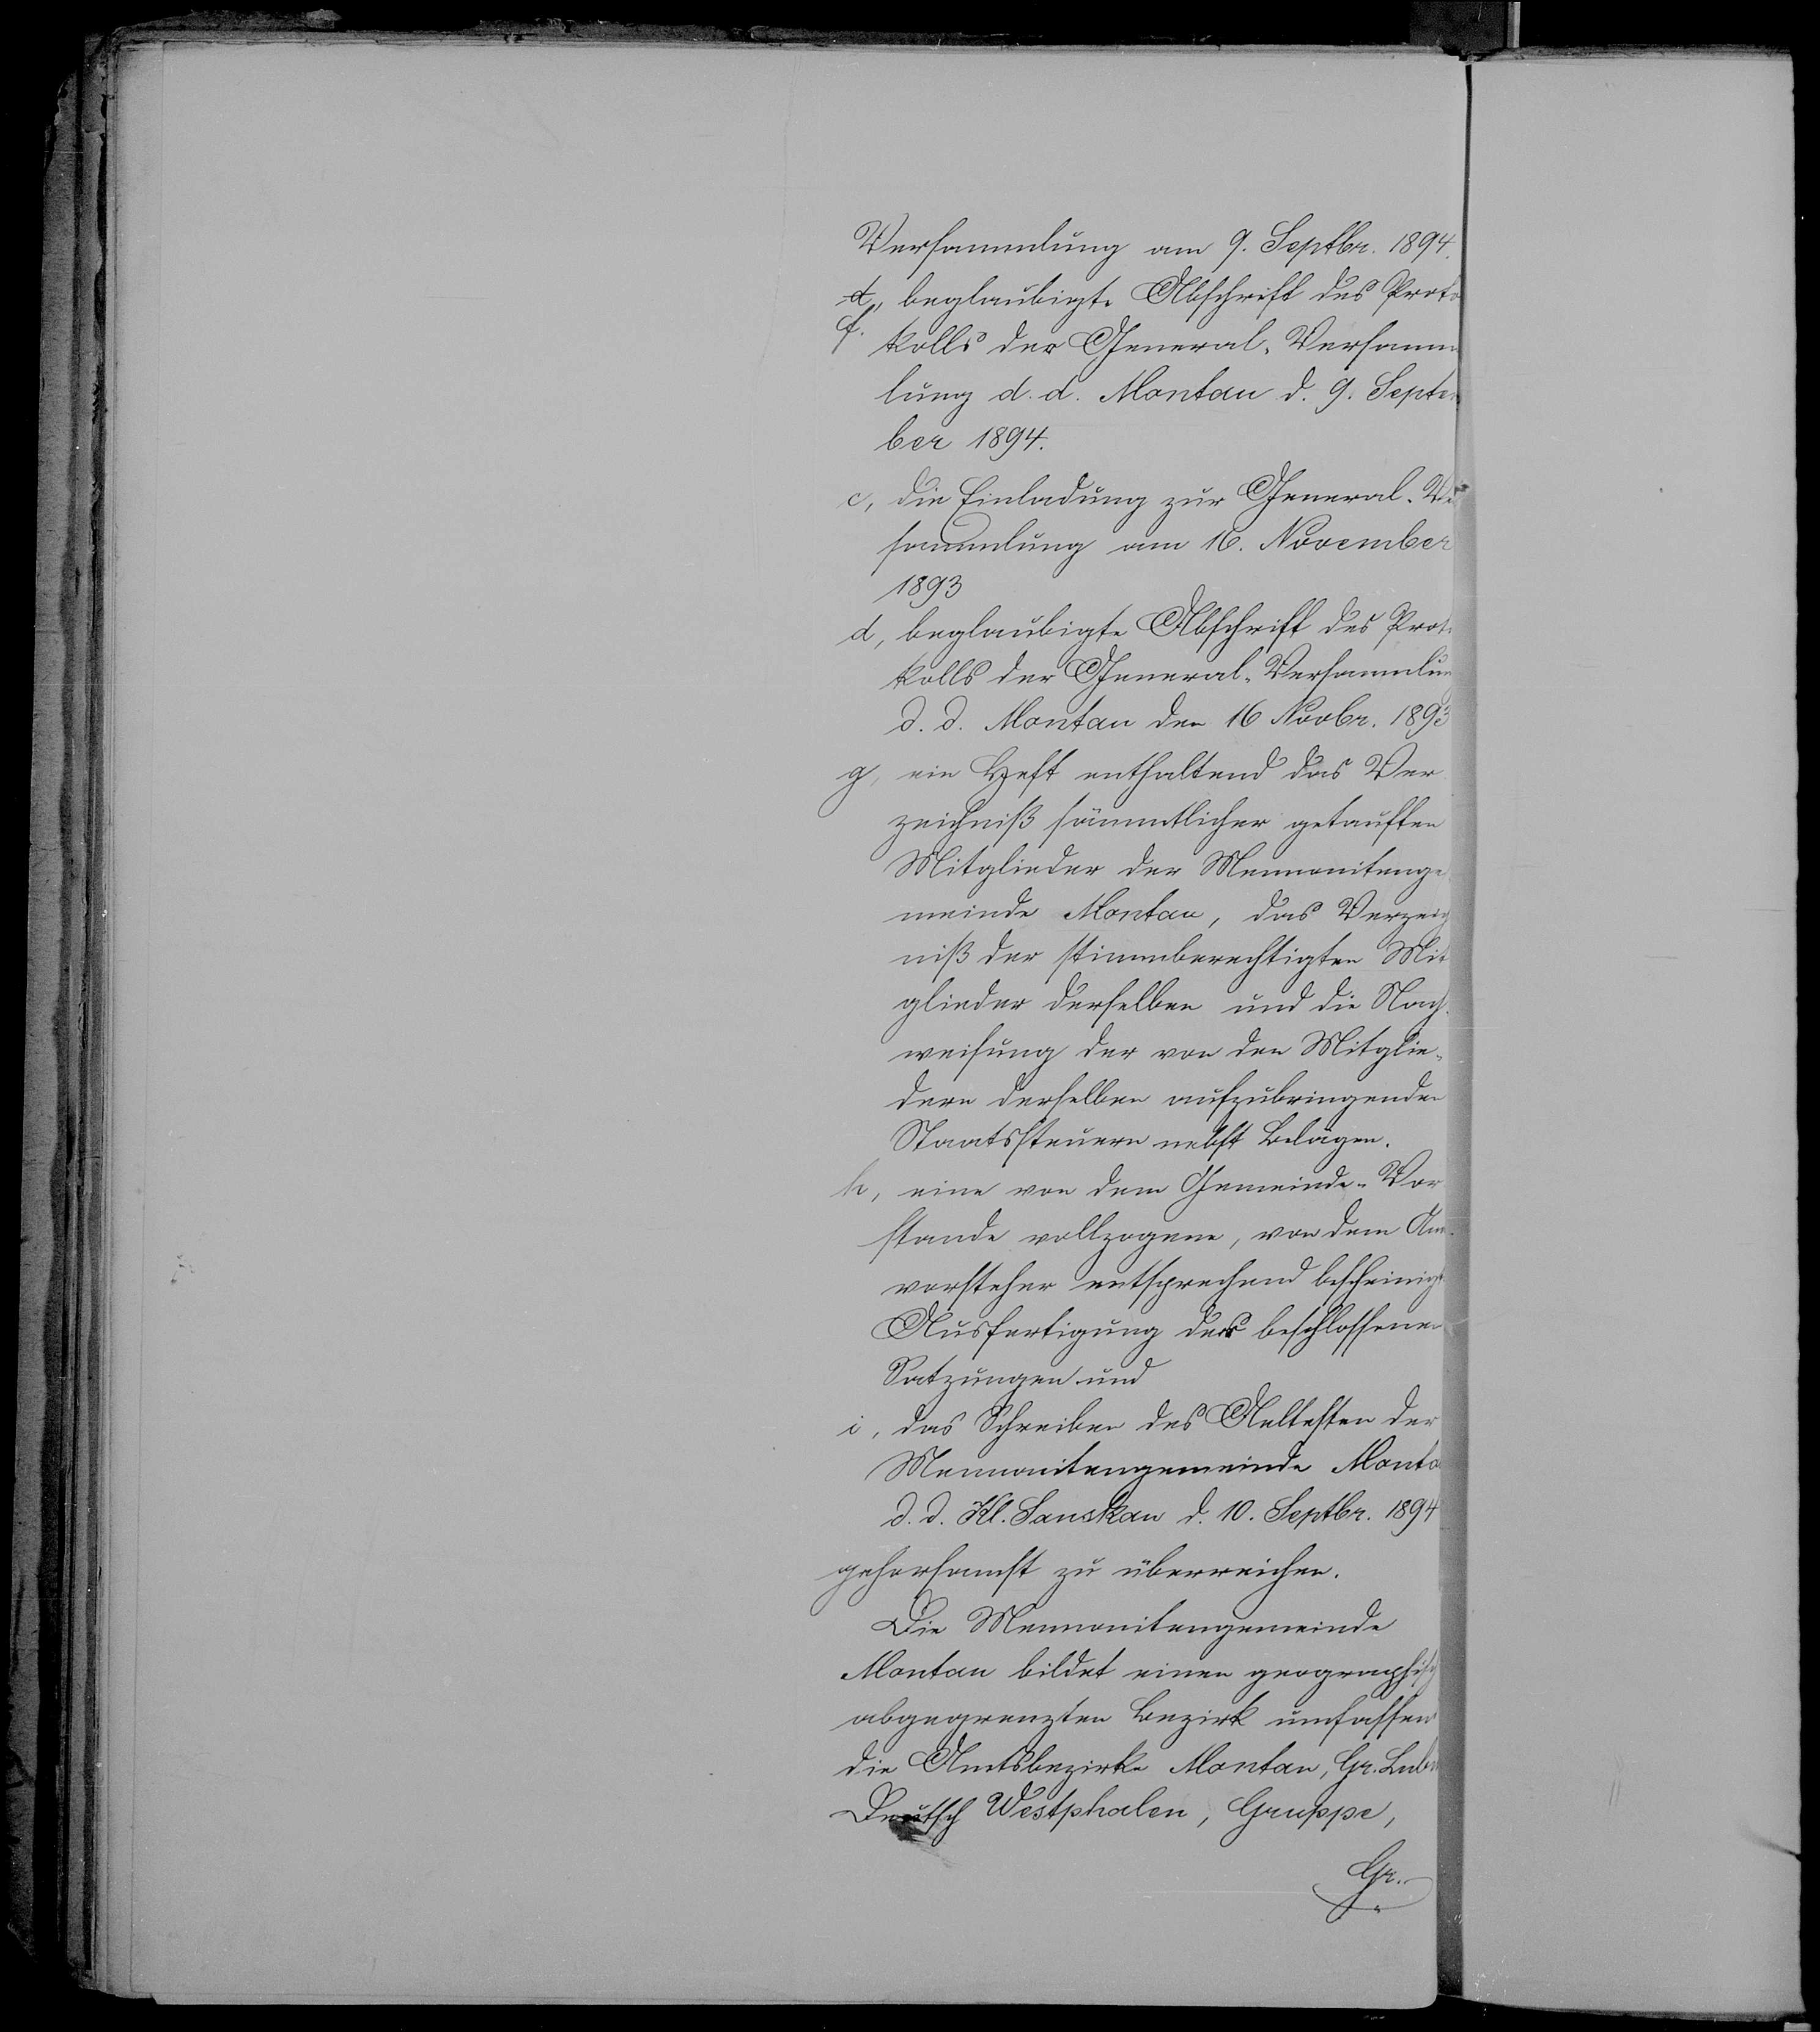 Versammlung am 9. Septbr. 1894.
d, beglaubigte Abschrift des Proto
f.
kolls der General-Versamm
lung d. d. Montau d. 9. Septem
ber 1894.
c, die Einladung zur General-Ver
sammlung am 16. November
1893
d, beglaubigte Abschrift des Proto
kolls der General-Versammlung
d. d. Montau den 16 Novbr. 1893
g, ein Heft enthaltend das Ver
zeichniß sämmtlicher getauften
Mitglieder der Mennonitenge-
meinde Montau, das Verzeich
niß der stimmberechtigten Mit
glieder derselben und die Nach-
weisung der von den Mitglie-
dern derselben aufzubringenden
Staatssteuern nebst Belägen.
h, eine von dem Gemeinde-Vor
stande vollzogene, von dem Am
vorsteher entsprechend bescheinigt
Ausfertigung der beschlossenen
Satzungen und
i, das Schreiben des Aeltesten der
Mennonitengemeinde Monta
d. d. Kl. Sanskau d. 10. Septbr. 1894
gehorsamst zu überreichen.
Die Mennonitengemeinde
Montau bildet einen geographisch
abgegrenzten Bezirk umfassend
die Amtsbezirke Montau, Gr. Lub
Deutsch Westphalen, Gruppe,
Gr.